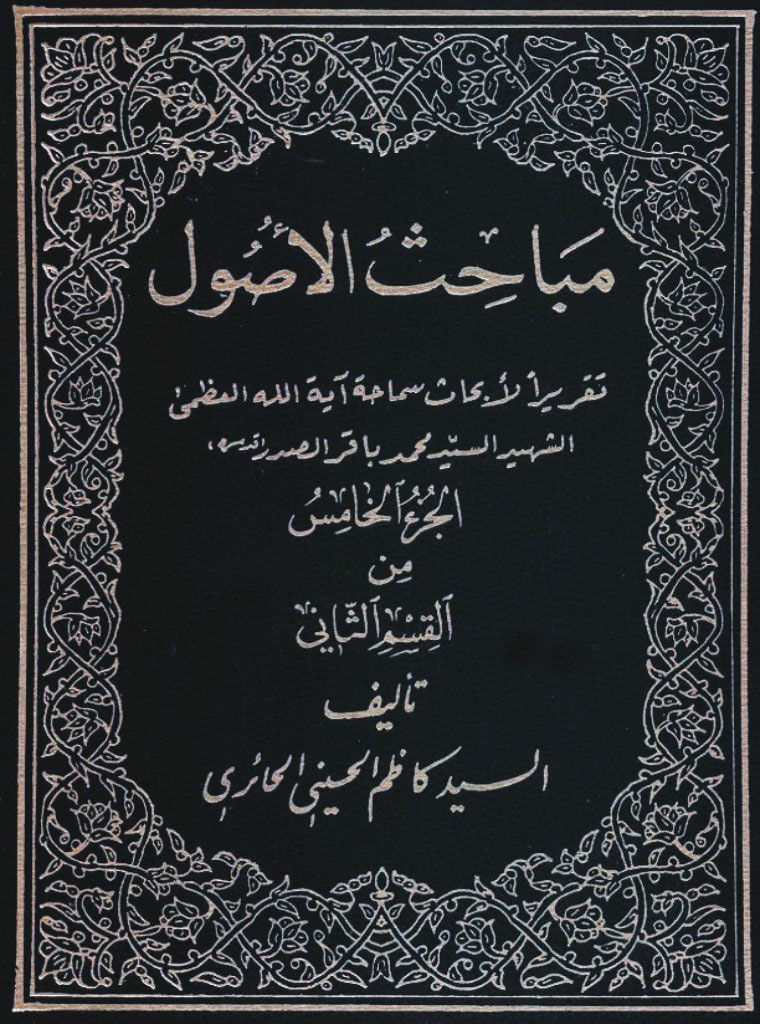 مَبَاحِثُ الأُصُول
تقريراً لأبحاث سماحة آية الله العظمى
الشهيد السيّد محمد باقر الصدر «قدس سره»
الجُزءُ الخَامِسُ
مِن
القِسْمِ الثَّاني
تأليف
السيد كاظم الحسيني الحائري